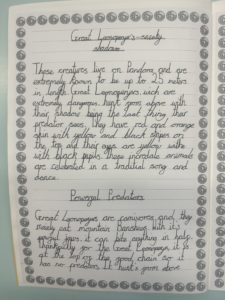 Great Leonopteryx's scary
shadow
These creatures live on Pandora and are
extremely known to be up to 25 meters
in length. Great Leonopteryxes are
extremely dangerous hunt from above with
their shadow being the last thing their
predator sees, they have red and orange
skin with yellow and black stripes on
the top and their eyes are yellow white
with black pupils. These animals
are celebrated in a traditional song and
dance.
Powerful Predators
Great Leonopteryxes are carnivores and they
mainly eat mountain Banshees. With it's
powerful jaws it can bite anything in half.
Thankfully for the Great Leonopteryx it is
at the top of the food chain so it
has no predators. It hunt's from above